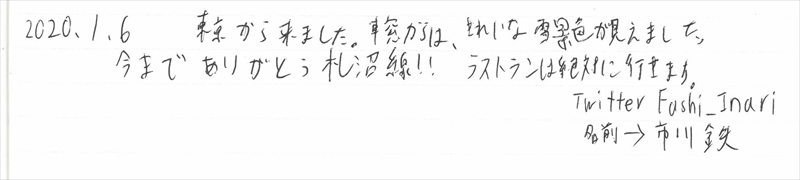 2020.1.6 東京から来ました。車窓からは、きれいな雪景色が見えました。
今までありがとう札沼線!! ラストランは絶対に行きます。
Twitter Fushi_Inari
名前→市川 鉄